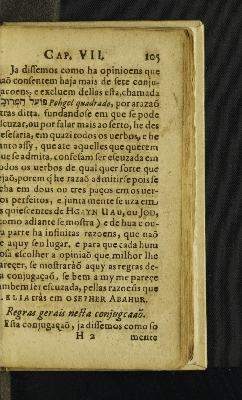 CAP. VII. 105
Ja dissemos como ha opinioens que
naõ consentem haja mais de sete conju-
gacoens, e excluem dellas esta, chamada
פועל המרובע Pohgel quadrado, por arazaõ
tras ditta. fundandose em que se pode
escuzar, ou por falar mais ao serto, he des
nesesaria, em quazi todos os verbos, e he
tanto assy, que ate aquelles que querem
que se admita, confesam ser escuzada em
todos os verbos de qual quer sorte que
sejaõ, porem q̃ he razaõ admitirse pois se
acha em dous ou tres paços em os ver-
bos perfeitos, e junta mente se uza em
os quiescentes de HGAYN UAU, ou JOD,
(como adiante se mostra) e de hua e ou-
tra parte ha infinitas razoens, que naõ
he aquy seu lugar, e para que cada hum
posa escolher a opiniaõ que milhor lhe
pareçer, se mostrarão aquy as regras de-
sta conjugaçaõ, se bem a my me pareçe
tambem ser escuzada, pellas razoẽs que
ELIA tràs em o SEPHER ABAHUR.
Regras gerais nesta conjugcaaõ.
Esta conjugaçaõ, ja dissemos como so
H 2 mente